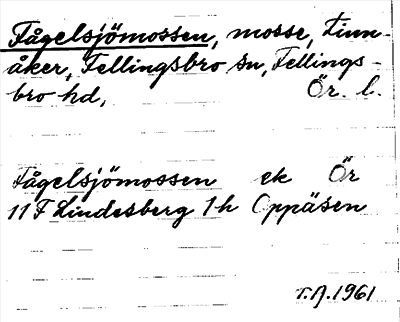 Fågelsjömossen, mosse, Finn-
åker, Fellingsbro sn, Fellings-
bro hd, Ör. l.
Fågelsjömossen ek Ör
11 F Lindesberg 1h Oppåsen
T.A. 1961